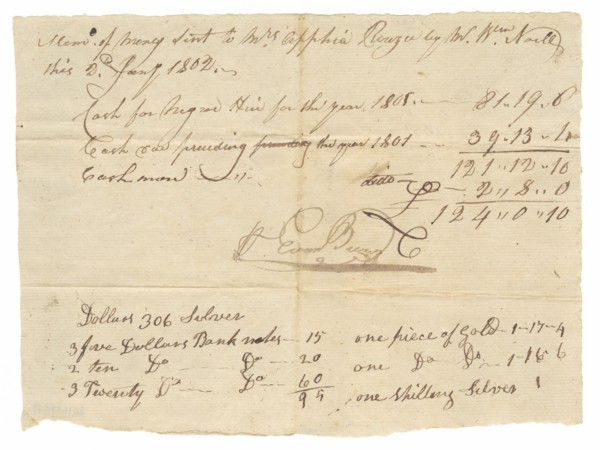 Mem. of Money Sent to Mrs. Apphia Rouzee by Mr. Wm. Noell
this 2d. Jany. 1802.
Cash for Negroe Hire for the year 1801. — 81..19..6
Cash preceding the year 1801 — 39..13..4
121..12..10
Cash more ditto — 2..8..0
124..0..10
Dollars 306 Silver
3 five Dollars Bank notes — 15 one piece of Gold — 1-17-4
2 ten Do — Do — 20 one Do Do — 1-15 6
3 Twenty Do — Do — 60 one shilling Silver 1
95